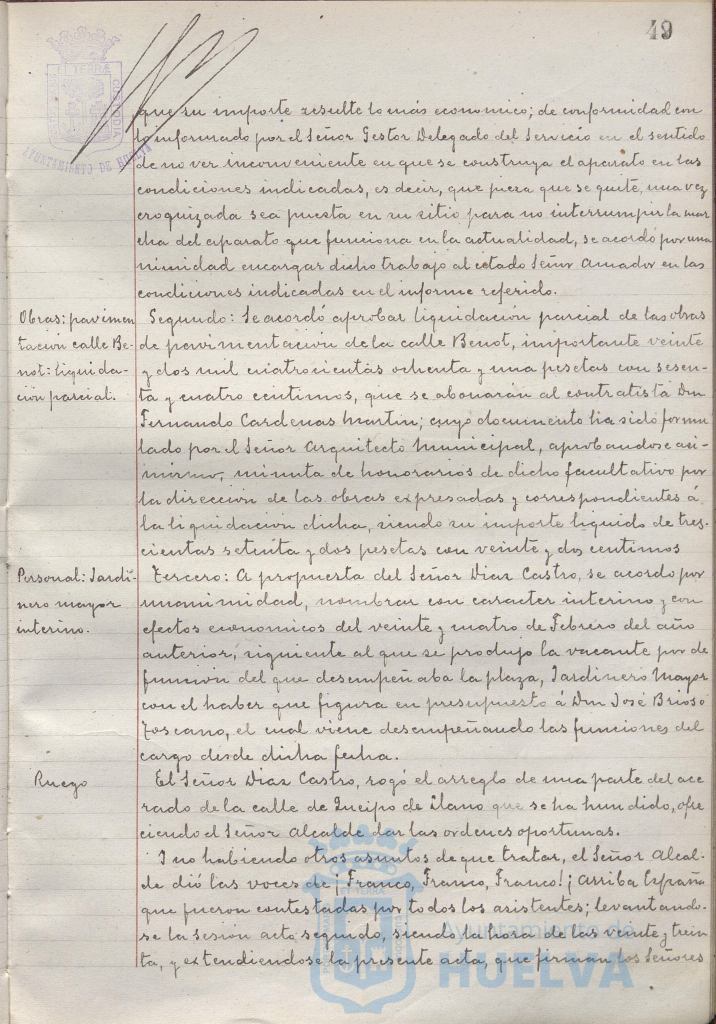 49
AYUNTAMIENTO DE HUELVA
que su importe resulte lo más economico; de conformidad con
lo informado por el Señor Gestor Delegado del Servicio en el sentido
de no ver inconveniente en que se construya el aparato en las
condiciones indicadas, es decir, que pieza que se quite, una vez
croquizada sea puesta en su sitio para no interrumpir la mar
cha del aparato que funciona en la actualidad, se acordó por una
nimidad encargar dicho trabajo al citado Señor Amador en las
condiciones indicadas en el informe referido.
Obras: pavimen
tacion calle Be-
not: liquida-
ción parcial.
Segundo: Se acordó aprobar liquidación parcial de las obras
de pavimentación de la calle Benot, importante veinte
y dos mil cuatrocientas ochenta y una pesetas con sesen-
ta y cuatro centimos, que se abonarán al contratista Don
Fernando Cardenas Martin; cuyo documento ha sido formu
lado por el Señor Arquitecto Municipal, aprobandose asi-
mismo, minuta de honorarios de dicho facultativo por
la dirección de las obras expresadas y correspondientes á
la liquidación dicha, siendo su importe liquido de tres-
cientas setenta y dos pesetas con veinte y dos centimos
Personal: Jardi-
nero mayor
interino.
Tercero: A propuesta del Señor Diaz Castro, se acordó por
unanimidad, nombrar con caracter interino y con
efectos economicos del veinte y cuatro de Febrero del año
anterior, siguiente al que se produjo la vacante por de
funcion del que desempeñaba la plaza, Jardinero Mayor
con el haber que figura en presupuesto á Don José Brioso
Toscano, el cual viene desempeñando las funciones del
cargo desde dicha fecha.
Ruego
El Señor Diaz Castro, rogó el arreglo de una parte del ace
rado de la calle de Queipo de Llano que se ha hundido, ofre
ciendo el Señor Alcalde dar las ordenes oportunas.
Y no habiendo otros asuntos de que tratar, el Señor Alcal-
de dió las voces de ¡Franco, Franco, Franco! ¡Arriba España
que fueron contestadas por todos los asistentes; levantando-
se la sesión acto seguido, siendo la hora de las veinte y trein
ta, y extendiendose la presente acta, que firman los Señores
Ayuntamiento de
HUELVA